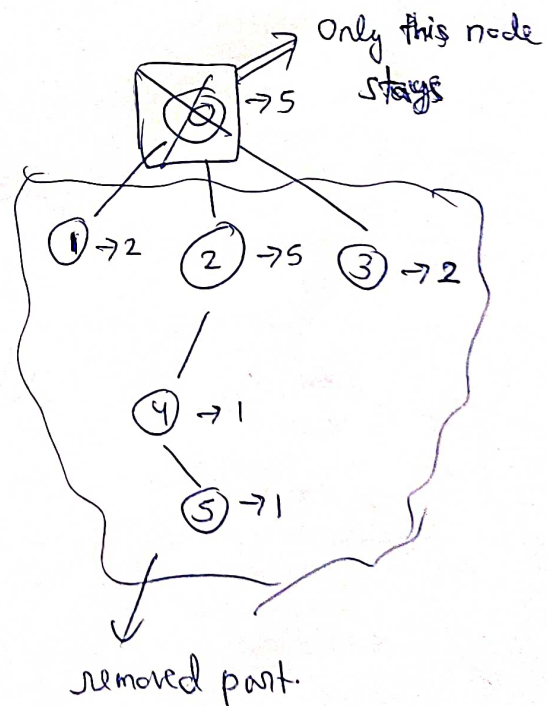 Only this node
stays
0 →5
1 →2
2 →5
3 →2
4 →1
5 →1
removed part.